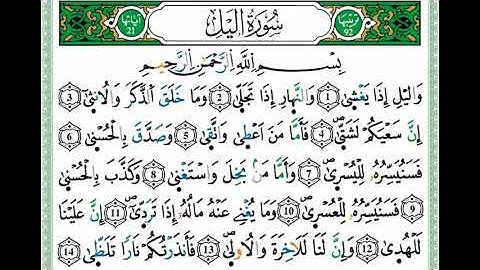 ترتيبها 92 سُورَةُ الَّيْلِ آياتها 21
بِسْمِ اللّٰهِ الرَّحْمٰنِ الرَّحِيمِ
وَالَّيْلِ إِذَا يَغْشٰى ① وَالنَّهَارِ إِذَا تَجَلّٰى ② وَمَا خَلَقَ الذَّكَرَ وَالْأُنْثٰى ③
إِنَّ سَعْيَكُمْ لَشَتّٰى ④ فَأَمَّا مَنْ أَعْطٰى وَاتَّقٰى ⑤ وَصَدَّقَ بِالْحُسْنٰى ⑥
فَسَنُيَسِّرُهُ لِلْيُسْرٰى ⑦ وَأَمَّا مَنْ بَخِلَ وَاسْتَغْنٰى ⑧ وَكَذَّبَ بِالْحُسْنٰى
⑨ فَسَنُيَسِّرُهُ لِلْعُسْرٰى ⑩ وَمَا يُغْنِي عَنْهُ مَالُهُ إِذَا تَرَدّٰى ⑪ إِنَّ عَلَيْنَا
لَلْهُدٰى ⑫ وَإِنَّ لَنَا لَلْآخِرَةَ وَالْأُولٰى ⑬ فَأَنْذَرْتُكُمْ نَارًا تَلَظّٰى ⑭